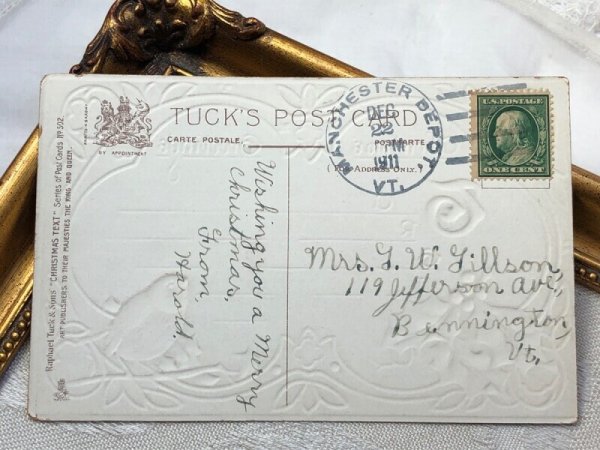 TUCK'S POST CARD
CARTE POSTALE
POSTKARTE
BY APPOINTMENT
(FOR ADDRESS ONLY.)
MANCHESTER DEPOT,
DEC
22
1911
VT.
U.S. POSTAGE
ONE CENT
Raphael Tuck & Sons' "CHRISTMAS TEXT" Series of Post Cards No 502.
ART PUBLISHERS TO THEIR MAJESTIES THE KING AND QUEEN.
Wishing you a Merry
Christmas,
From
Harold.
Mrs. G. W. Tillson,
119 Jefferson Ave,
Bennington,
Vt.